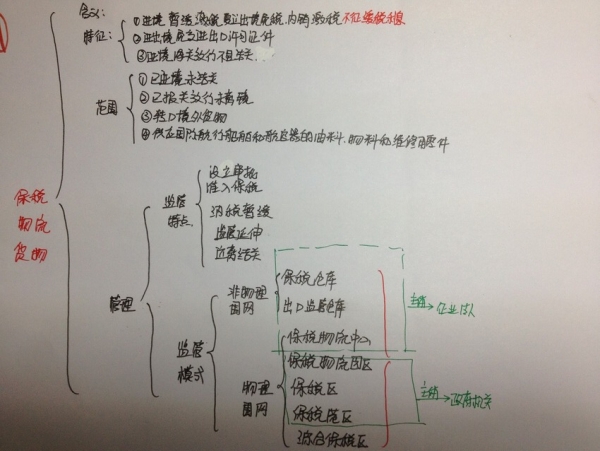 含义:
特征:
①进境暂缓纳税,复运出境免税,内销缴税不征缓税利息
②进出境免交进出口许可证件
③进境海关放行不结关
范围
①已进境未结关
②已报关放行未离境
③转口境外货物
④供应国际航行船舶和航空器的油料、物料和维修用零件
保税
物流
货物
管理
监管
特点
设立审批
准入保税
纳税暂缓
监管延伸
运离结关
监管
模式
非物理
围网
保税仓库
出口监管仓库
物理
围网
保税物流中心
保税物流园区
保税区
保税港区
综合保税区
主体→企业法人
主体→政府机关